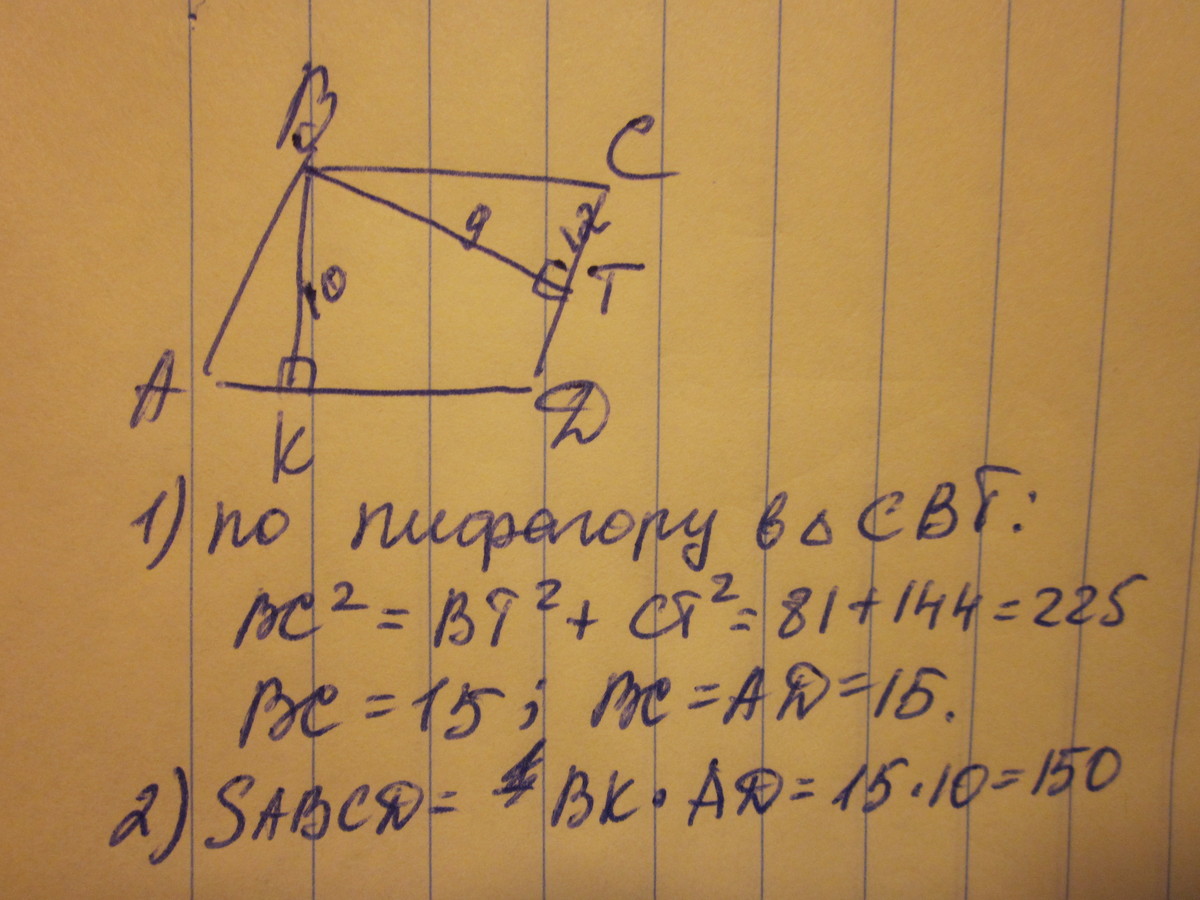 B
C
9
12
T
10
A
D
K
1) по пифагору в △ CBT:
BC² = BT² + CT² = 81 + 144 = 225
BC = 15; BC = AD = 15.
2) SABCD = BK · AD = 15 · 10 = 150